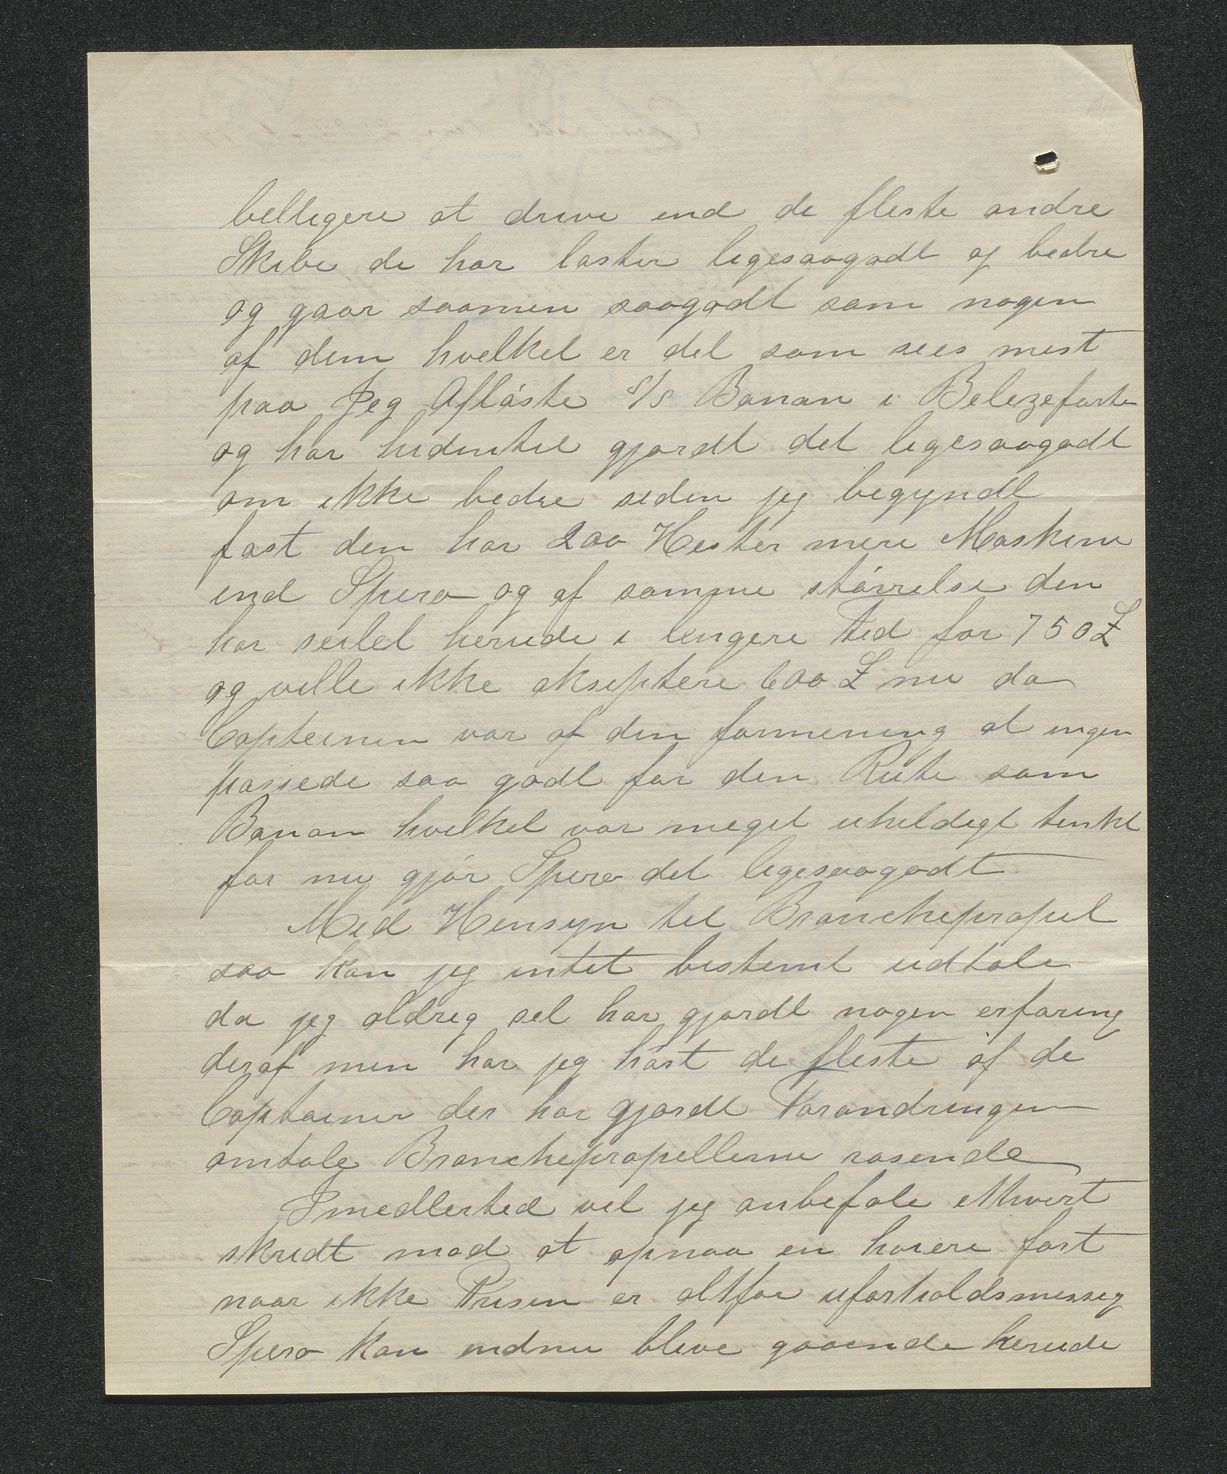 belligere at drive end de fleste andre
Skibe de har laster ligesaagodt og bedre
og gaar saamen saagodt som nogen
af dem hvelket er det som sees mest
paa Jeg Afløste S/S Banan i Belizefarten
og har hidentil gjordt det ligesaagodt
om ikke bedre siden jeg begyndt
fast den har 200 Hester mere Maskine
end Spero og af samme størrelse den
har seilet herude i lengere tid for 750 £
og ville ikke akseptere 600 £ nu da
Capteinen var af den formening at ingen
passede saa godt for den Rute som
Banan hvilket var meget uheldigt tenkt
for nu gjør Spero det ligesaagodt
Med Hensyn til Branchepropel
saa kan jeg intet bestemt udtale
da jeg aldrig sel har gjordt nogen erfaring
deraf men har jeg hørt de fleste af de
Captainer der har gjordt Forandringen
omtale Branchepropellerne rosende
Imedlertid vel jeg anbefale ethvert
skridt mod at opnaa en høiere fart
naar ikke Prisen er altfor uforholdsmessig
Spero kan endnu blive gaaende herude